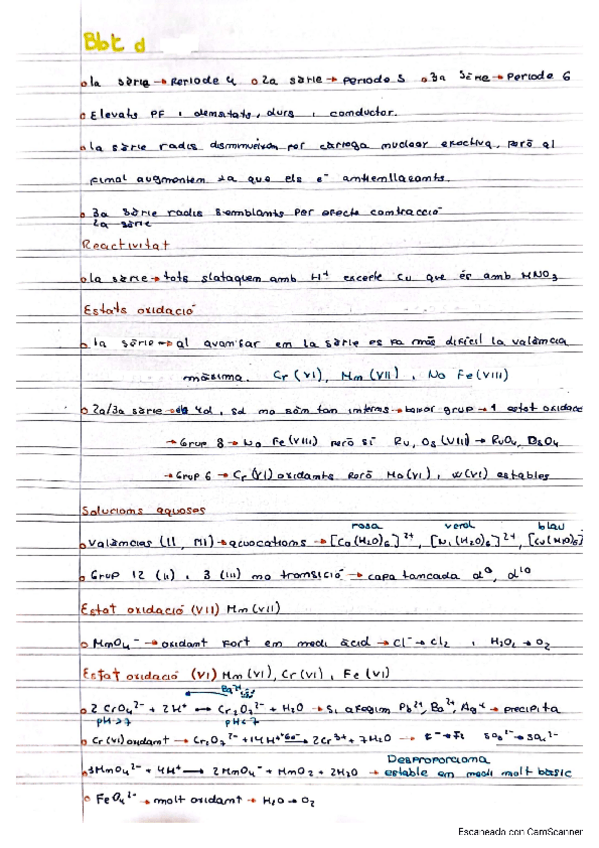 Bloc d
1a sèrie → Periode 4 o 2a sèrie → periode 5 o 3a sèrie → Periode 6
Elevats PF i densitats, durs i conductor.
1a sèrie radis disminueixen per càrrega nuclear efectiva, però al
final augmenten ja que els e⁻ antienllaçants.
3a sèrie radis semblants per efecte contracció
2a sèrie
Reactivitat
1a sèrie → tots s'ataquen amb H⁺ excepte Cu que és amb HNO₃
Estats oxidació
1a sèrie → al avançar en la sèrie es fa més difícil la valència
màxima. Cr (VI), Mn (VII), No Fe (VIII)
2a/3a sèrie → 4d, 5d no són tan interns → baixar grup → ↑ estat oxidació
→ Grup 8 → No Fe (VIII) però sí Ru, Os (VIII) → RuO₄, OsO₄
→ Grup 6 → Cr (VI) oxidants però Mo (VI), W (VI) estables
Solucions aquoses
rosa verd blau
Valències (II, III) → aquocations → [Co(H₂O)₆]²⁺, [Ni(H₂O)₆]²⁺, [Cu(H₂O)₆]
Grup 12 (II) i 3 (III) no transició → capa tancada d⁰, d¹⁰
Estat oxidació (VII) Mn (VII)
MnO₄⁻ → oxidant fort en medi àcid → Cl⁻ → Cl₂ i H₂O₂ → O₂
Estat oxidació (VI) Mn (VI), Cr (VI) i Fe (VI)
Ba²⁺
2 CrO₄²⁻ + 2H⁺ ⟷ Cr₂O₇²⁻ + H₂O → Si afegim Pb²⁺, Ba²⁺, Ag⁺ → precipita
pH>7 pH<7
Cr (VI) oxidant → Cr₂O₇²⁻ + 14H⁺ + 6e⁻ → 2Cr³⁺ + 7H₂O → I⁻ → I₂ SO₃²⁻ → SO₄²⁻
Desproporciona
3MnO₄²⁻ + 4H⁺ → 2MnO₄⁻ + MnO₂ + 2H₂O → estable en medi molt bàsic
FeO₄²⁻ → molt oxidant → H₂O → O₂
Escaneado con CamScanner